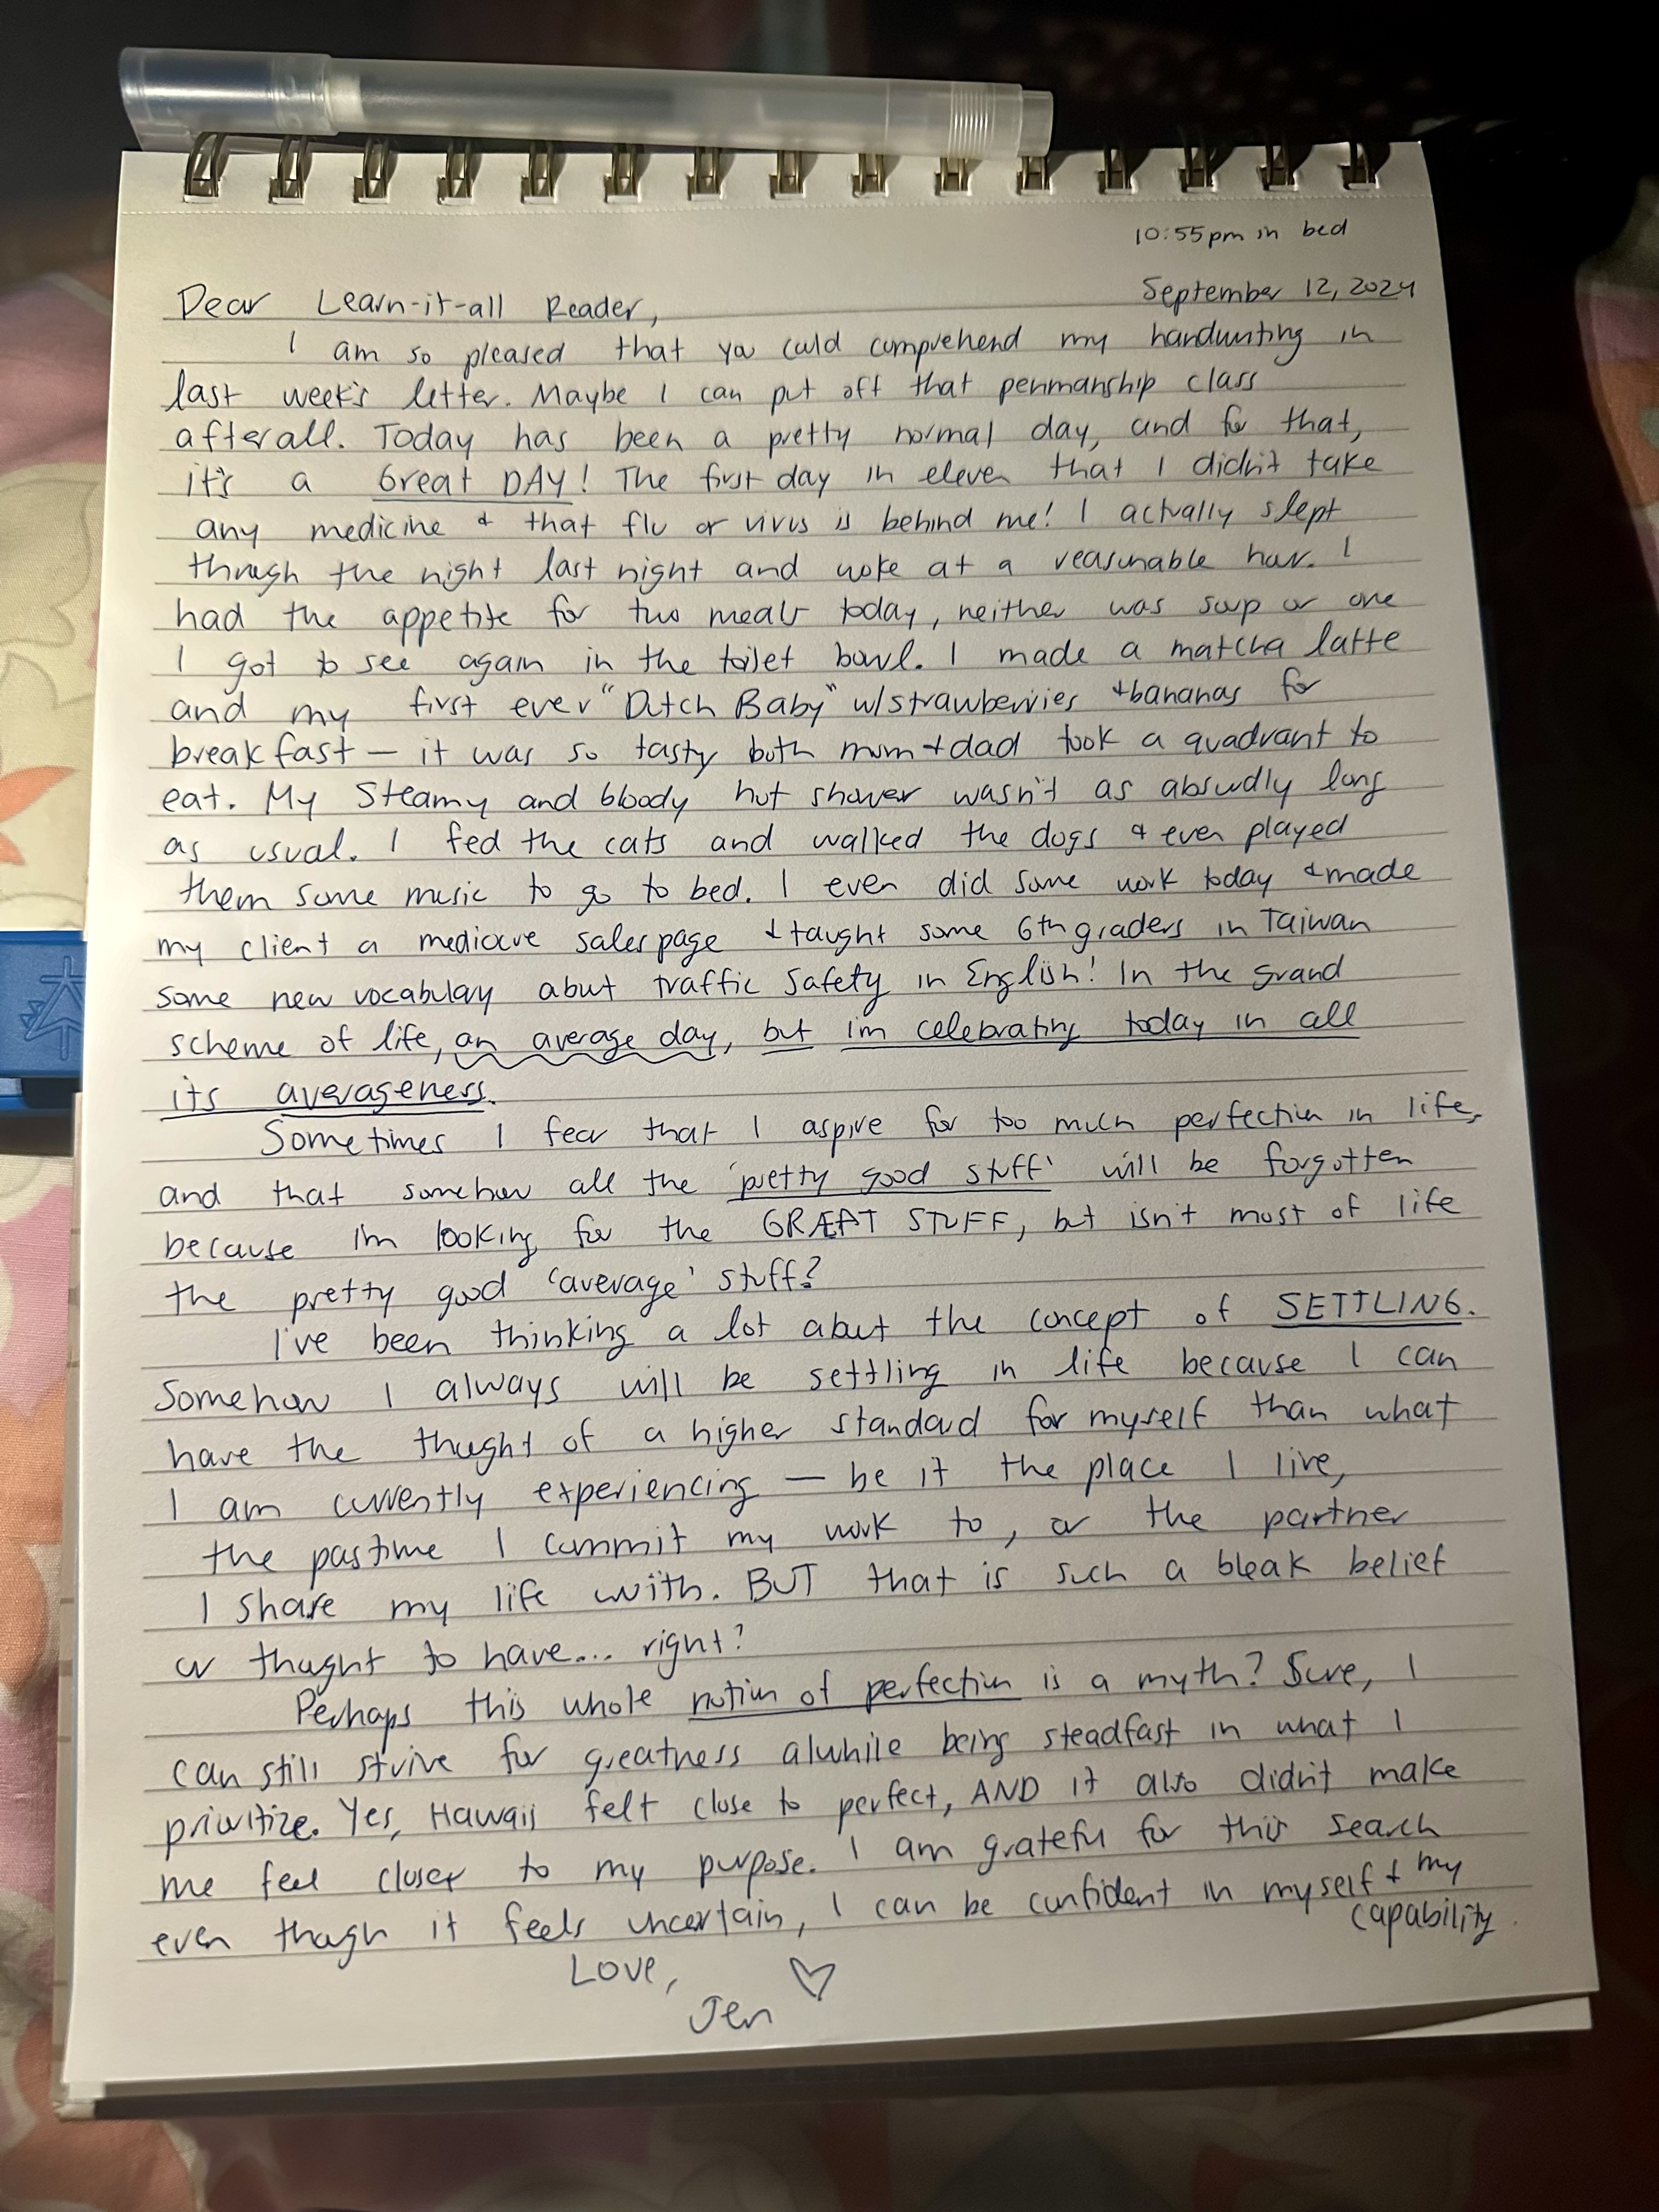 10:55pm in bed
September 12, 2024
Dear Learn-it-all Reader,
I am so pleased that you could comprehend my handwriting in
last week's letter. Maybe I can put off that penmanship class
afterall. Today has been a pretty normal day, and for that,
it's a Great DAY! The first day in eleven that I didn't take
any medicine & that flu or virus is behind me! I actually slept
through the night last night and woke at a reasonable hour. I
had the appetite for two meals today, neither was soup or one
I got to see again in the toilet bowl. I made a matcha latte
and my first ever "Dutch Baby" w/strawberries + bananas for
breakfast — it was so tasty both mom + dad took a quadrant to
eat. My Steamy and bloody hot shower wasn't as absurdly long
as usual. I fed the cats and walked the dogs & even played
them some music to go to bed. I even did some work today & made
my client a mediocre sales page & taught some 6th graders in Taiwan
some new vocabulary about traffic safety in English! In the grand
scheme of life, an average day, but im celebrating today in all
its averageness.
Sometimes I fear that I aspire for too much perfection in life,
and that somehow all the 'pretty good stuff' will be forgotten
because im looking for the GREAT STUFF, but isn't most of life
the pretty good 'average' stuff?
I've been thinking a lot about the concept of SETTLING.
Somehow I always will be settling in life because I can
have the thought of a higher standard for myself than what
I am currently experiencing — be it the place I live,
the pastime I commit my work to, or the partner
I share my life with. BUT that is such a bleak belief
or thought to have... right?
Perhaps this whole notion of perfection is a myth? Sure, I
can still strive for greatness alwhile being steadfast in what I
prioritize. Yes, Hawaii felt close to perfect, AND it also didn't make
me feel closer to my purpose. I am grateful for this search
even though it feels uncertain, I can be confident in myself + my
capability.
Love,
Jen ♡